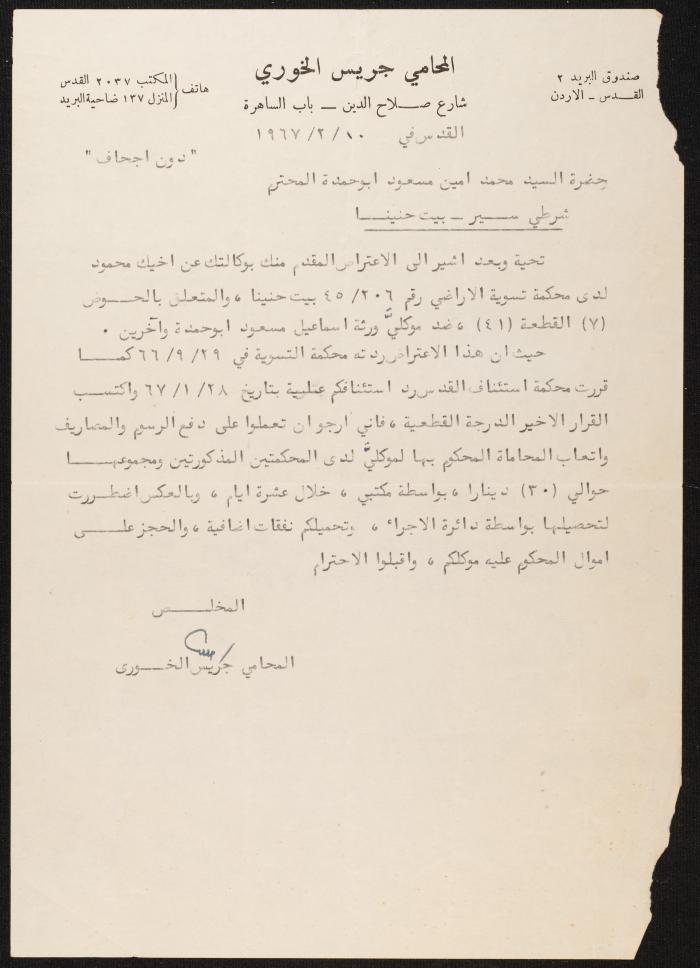 المحامي جريس الخوري
صندوق البريد ٢
القدس - الاردن
شارع صلاح الدين - باب الساهرة
هاتف { المكتب ٢٠٣٧ القدس
المنزل ١٣٧ ضاحية البريد
القدس في ١٠/ ٢/ ١٩٦٧
" دون اجحاف "
حضرة السيد محمد امين مسعود ابوحمدة المحترم
شرطي سير - بيت حنينا
تحية وبعد اشير الى الاعتراض المقدم منك بوكالتك عن اخيك محمود
لدى محكمة تسوية الاراضي رقم ٢٠٦/ ٤٥ بيت حنينا ، والمتعلق بالحوض
(٧) القطعة (٤١) ، ضد موكليَّ ورثة اسماعيل مسعود ابوحمدة وآخرين .
حيث ان هذا الاعتراض ردته محكمة التسوية في ٢٩/ ٩/ ٦٦ كما
قررت محكمة استئناف القدس رد استئنافكم عنلمية بتاريخ ٢٨/ ١/ ٦٧ واكتسب
القرار الاخير الدرجة القطعية ، فاني ارجو ان تعملوا على دفع الرسوم والمصاريف
واتعاب المحاماة المحكوم بها لموكليَّ لدى المحكمتين المذكورتين ومجموعها
حوالي (٣٠) دينارا ، بواسطة مكتبي ، خلال عشرة ايام ، وبالعكس اضطررت
لتحصيلها بواسطة دائرة الاجراء ، وتحميلكم نفقات اضافية ، والحجز على
اموال المحكوم عليه موكلكم ، واقبلوا الاحترام
المخلص
المحامي جريس الخورى